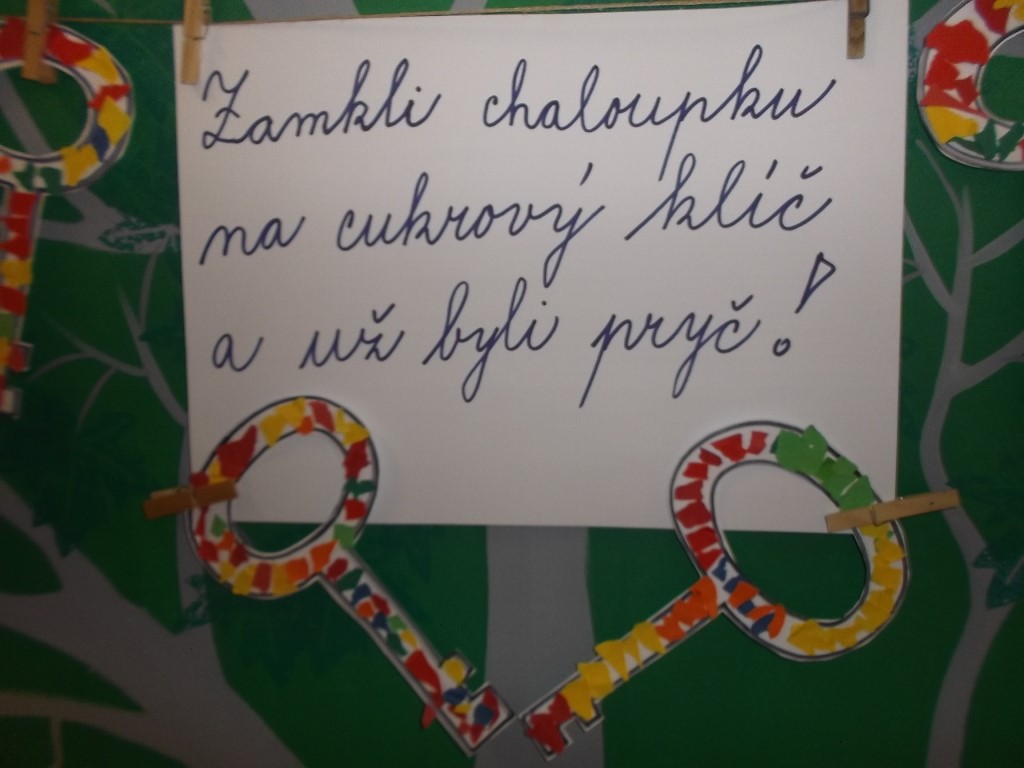 Zamkli chaloupku
na cukrový klíč
a už byli pryč!